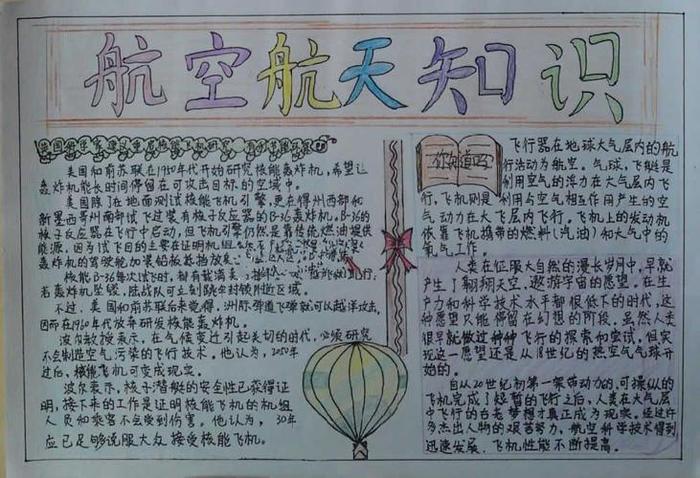 航空航天知识
美国和前苏联在1950年代开始研究核能轰炸机,希望让
轰炸机能长时间停留在可攻击目标的空域中。
美国除了在地面测试核能飞机引擎,更在得州西部和
新墨西哥州南部试飞过装有核子反应器的B-36轰炸机。B-36的
核子反应器在飞行中启动,但飞机引擎仍然是靠传统燃油提供
能源。因为试飞目的主要在证明机组
轰炸机的驾驶舱加装铅板
核能B-36每次试飞时,都有载满
若轰炸机坠毁,陆战队可立刻跳伞封锁附近区域。
不过,美国和前苏联后来觉得,洲际弹道飞弹就可以越洋攻击,
因而在1960年代放弃研发核能轰炸机。
波尔教授表示,在气候变迁引起关切的时代,必须研究
不会制造空气污染的飞行技术。他认为,2050年
过后,核能飞机可变成现实。
波尔表示,核子潜艇的安全性已获得证
明,接下来的工作是证明核能飞机的机组
人员和乘客不会受到伤害。他认为,30年
应已足够说服大众接受核能飞机。
你知道吗
飞行器在地球大气层内的航
行活动为航空。气球,飞艇是
利用空气的浮力在大气层内飞
行,飞机则是利用与空气相互作用产生的空
气动力在大气层内飞行。飞机上的发动机
依靠飞机携带的燃料(汽油)和大气中的
氧气工作。
人类在征服大自然的漫长岁月中,早就
产生了翱翔天空,遨游宇宙的愿望。在生
产力和科学技术水平都很低下的时代,这
种愿望只能停留在幻想的阶段。虽然人类
很早就做过种种飞行的探索和尝试,但实
现这一愿望还是从18世纪的热空气气球开
始的。
自从20世纪初第一架带动力的,可操纵的
飞机完成了短暂的飞行之后,人类在大气层
中飞行的古老梦想才真正成为现实。经过许
多杰出人物的艰苦努力,航空科学技术得到
迅速发展,飞机性能不断提高。